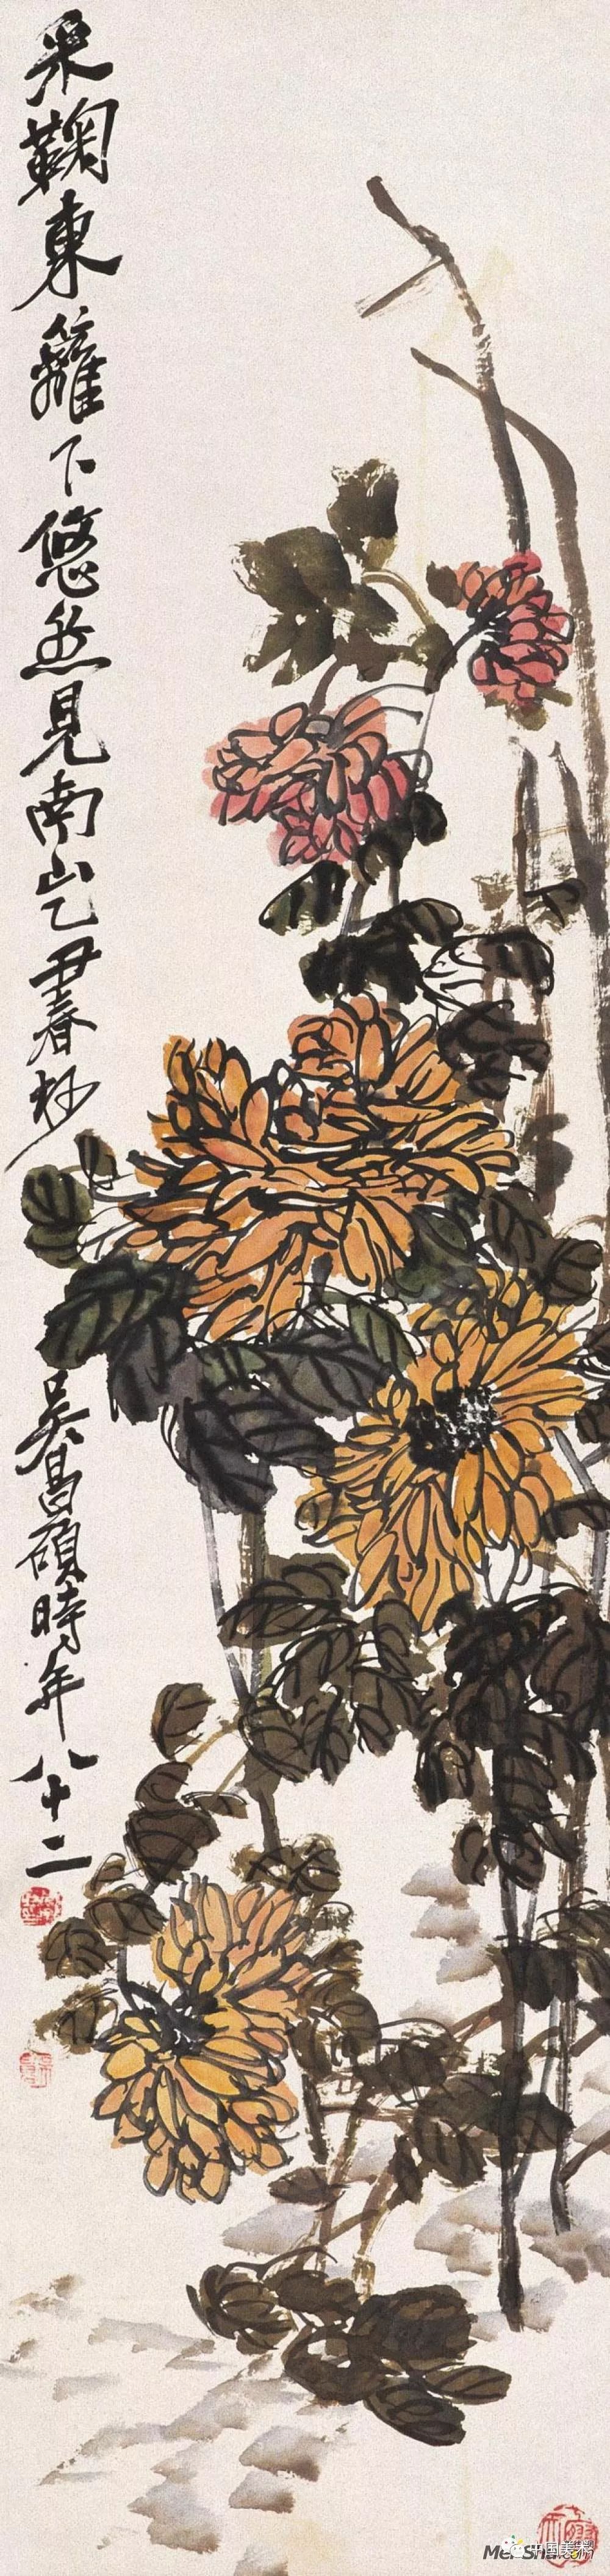 采鞠東籬下悠然見南山乙丑春抄
吴昌碩時年八十二
中国美术